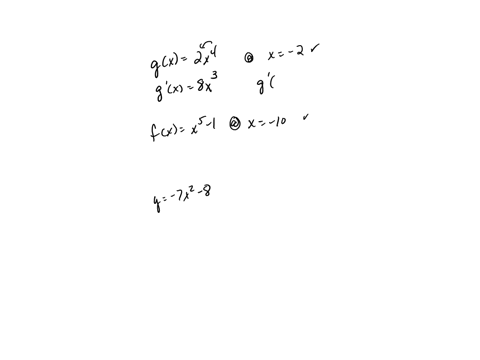 g(x) = 2x⁴ @ x = -2 ✓
g'(x) = 8x³ g'(
f(x) = x⁵-1 @ x = -10 ✓
y = -7x² - 8